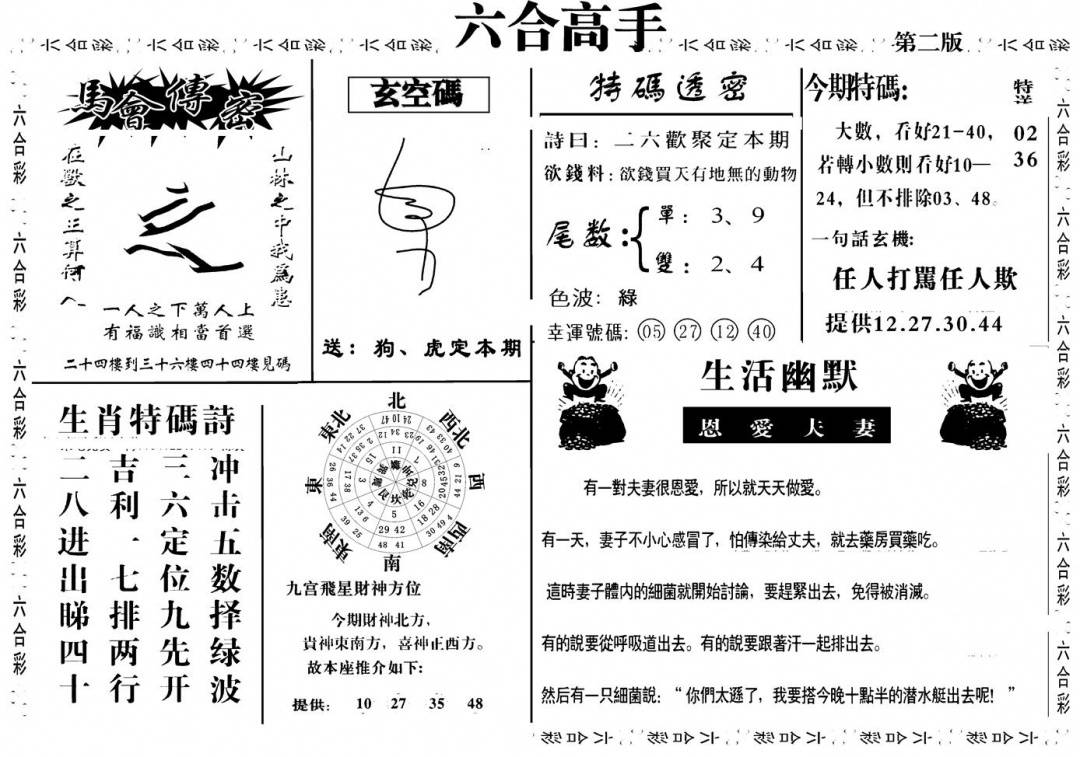 六合高手
第二版
馬會傳密
在獸之王算何人
山林之中我為患
一人之下萬人上
有福識相當首選
二十四樓到三十六樓四十四樓見碼
玄空碼
送：狗、虎定本期
特碼透密
詩曰：二六歡聚定本期
欲錢料：欲錢買天有地無的動物
尾数：
單：3、9
雙：2、4
色波：綠
幸運號碼：05 27 12 40
今期特碼:
特送
02
36
大數，看好21-40，
若轉小數則看好10—
24，但不排除03、48。
一句話玄機:
任人打罵任人欺
提供12.27.30.44
生肖特碼詩
冲击五数择绿波
三六定位九先开
吉利一七排两行
二八进出睇四十
北
西北
西
西南
南
東南
東
東北
九宫飛星財神方位
今期財神北方，
貴神東南方，喜神正西方。
故本座推介如下:
提供: 10 27 35 48
生活幽默
恩愛夫妻
有一對夫妻很恩愛，所以就天天做愛。
有一天，妻子不小心感冒了，怕傳染給丈夫，就去藥房買藥吃。
這時妻子體内的細菌就開始討論，要趕緊出去，免得被消滅。
有的說要從呼吸道出去。有的說要跟著汗一起排出去。
然后有一只細菌說：“你們太遜了，我要搭今晚十點半的潜水艇出去呢！”
六合彩 六合彩 六合彩 六合彩 六合彩